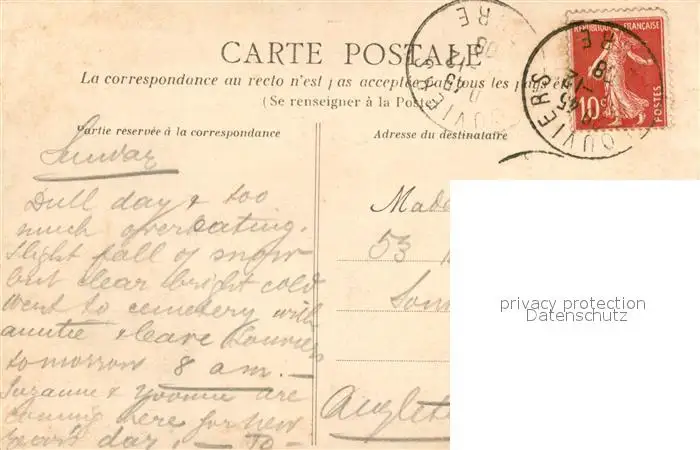 CARTE POSTALE
La correspondance au recto n'est pas acceptée par tous les pays é
(Se renseigner à la Poste)
RÉPUBLIQUE FRANÇAISE
10c
POSTES
LOUVIERS
EURE
Partie réservée à la correspondance
Adresse du destinataire
Sunday
Dull day & too
much overeating.
Slight fall of snow
but clear bright cold
Went to cemetery with
auntie & leave Louviers
tomorrow 8 am. —
Suzanne & Yvonne are
coming here for New
Year's day. — To —
Made
53
Lon
Anglet
privacy protection
Datenschutz